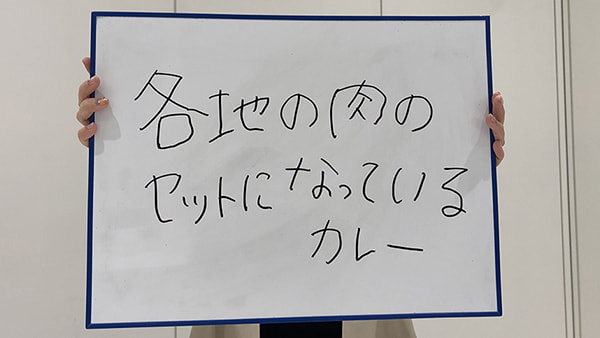 各地の肉の
セットになっている
カレー